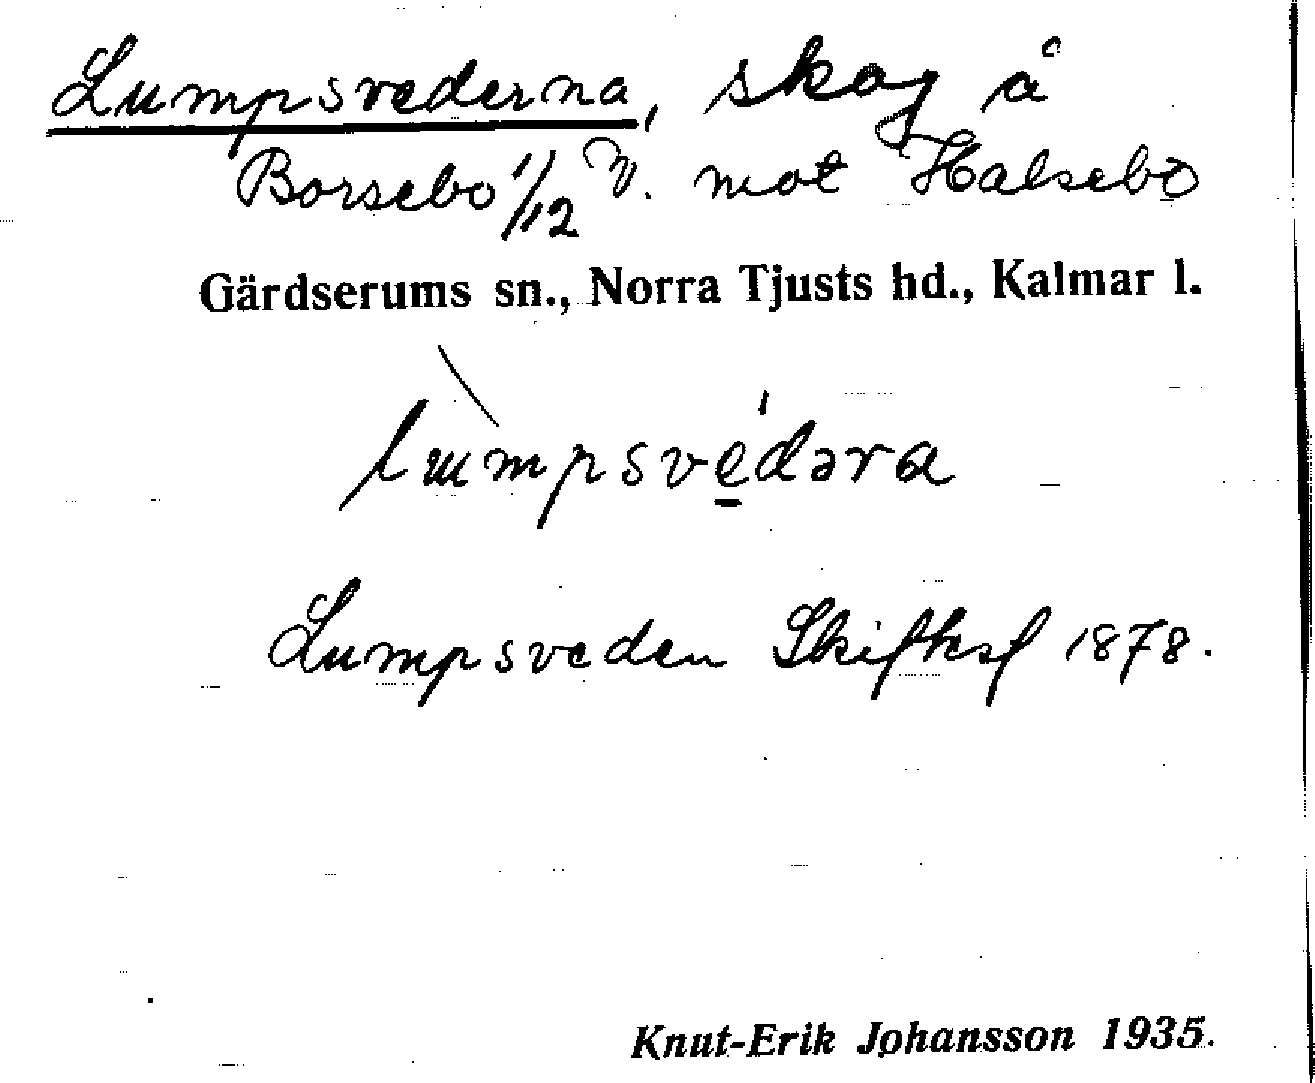 Lumpsvederna, skog å
Borsebo 1/12 V. mot Halsebo
Gärdserums sn., Norra Tjusts hd., Kalmar l.
lùmpsve̠´dəra
Lumpsveden Skifksf 1878.
Knut-Erik Johansson 1935.